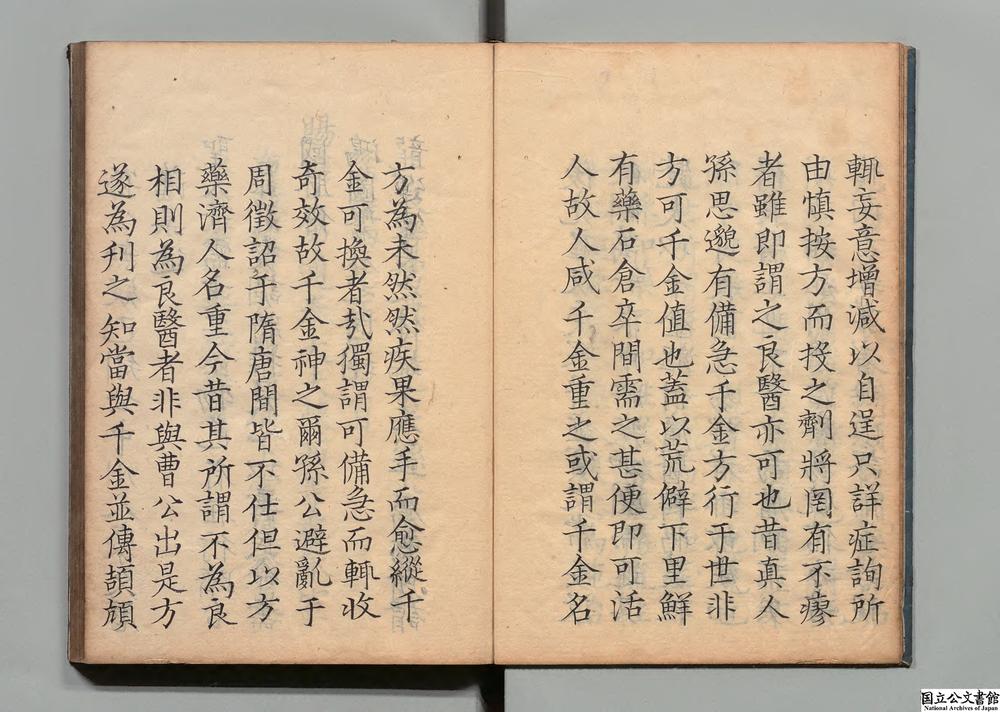 輙妄意增減以自逞只詳症詢所
由慎按方而投之劑將罔有不瘳
者雖即謂之良醫亦可也昔真人
孫思邈有備急千金方行于世非
方可千金值也蓋以荒僻下里鮮
有藥石倉卒間需之甚便即可活
人故人咸千金重之或謂千金名
方為未然然疾果應手而愈縱千
金可換者㢤獨謂可備急而輙收
奇效故千金神之爾孫公避亂于
周徵詔于隋唐間皆不仕但以方
藥濟人名重今昔其所謂不為良
相則為良醫者非與曹公出是方
遂為刋之知當與千金並傳頡頏
国立公文書館
National Archives of Japan